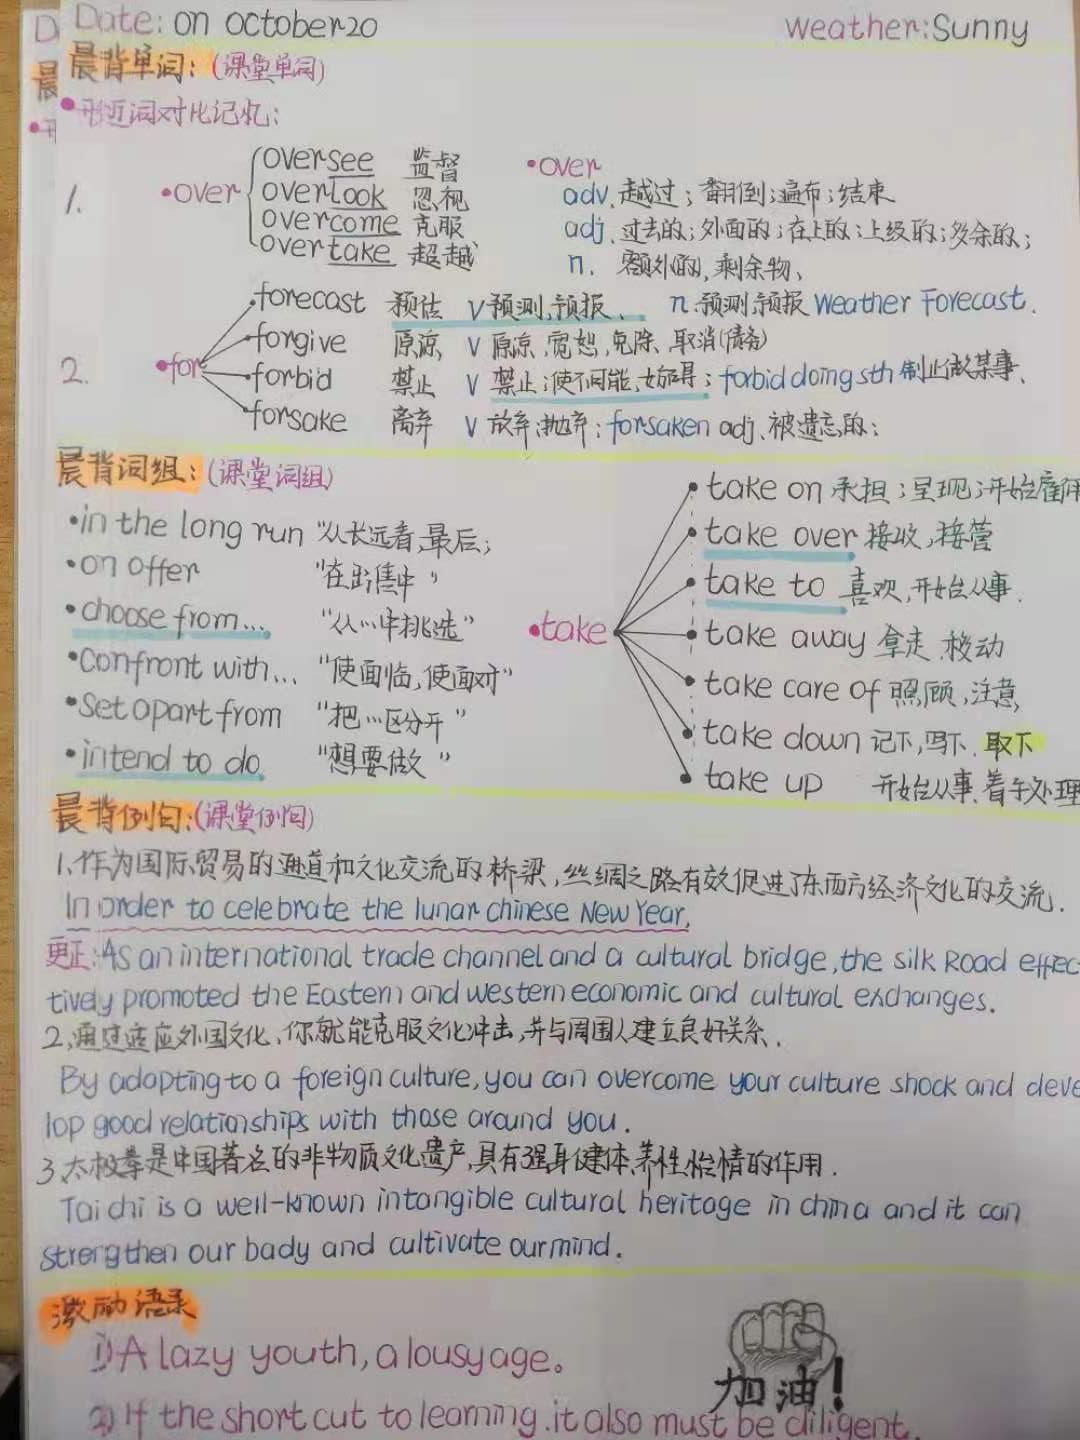 Date: on october20 weather:Sunny
晨背单词:(课堂单词)
•形近词对比记忆:
1. •over
oversee 监督
overlook 忽视
overcome 克服
overtake 超越
•over
adv.越过;翻倒;遍布;结束
adj.过去的;外面的;在上的;上级的;多余的;
n. 额外的,剩余物、
2. •for
forecast 预估 V预测,预报、 n.预测,预报 Weather Forecast.
forgive 原谅 V 原谅,宽恕,免除、取消(债务)
forbid 禁止 V 禁止;使不可能,妨碍; forbid doing sth 制止做某事、
forsake 离弃 V 放弃;抛弃; forsaken adj、被遗忘的;
晨背词组:(课堂词组)
•in the long run "从长远看,最后;
•on offer "在出售中"
•choose from... "从…中挑选"
•confront with... "使面临,使面对"
•set apart from "把…区分开"
•intend to do "想要做"
•take
take on 承担;呈现;开始雇用
take over 接收,接管
take to 喜欢,开始从事.
take away 拿走、移动
take care of 照顾,注意
take down 记下,写下、取下
take up 开始从事、着手处理
晨背例句:(课堂例句)
1、作为国际贸易的通道和文化交流的桥梁,丝绸之路有效促进了东西方经济文化的交流.
In order to celebrate the lunar chinese New Year,
更正:As an international trade channel and a cultural bridge,the silk Road effec
tively promoted the Eastern and western economic and cultural exchanges.
2,通过适应外国文化、你就能克服文化冲击,并与周围人建立良好关系.
By adapting to a foreign culture,you can overcome your culture shock and deve
lop good relationships with those around you.
3、太极拳是中国著名的非物质文化遗产,具有强身健体、养性怡情的作用.
Tai chi is a well-known intangible cultural heritage in china and it can
strengthen our bady and cultivate our mind.
激励语录
1)A lazy youth,a lousy age。
加油!
2)If the short cut to learning.it also must be diligent.